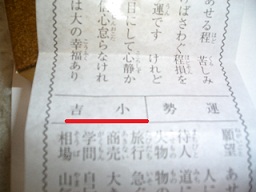 あせる程 苦しみ
ばさわぐ程損を
運です けれど
日にして心静か
心怠らなけれ
は大の幸福あり
運勢
小吉
願望 あ
待人 道に
失物
旅行 急
商売 大
学問 自
相場 山